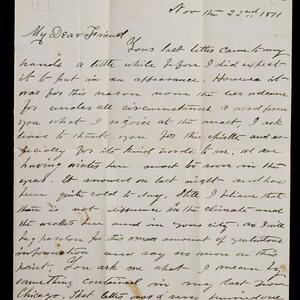 Nov the 22nd, 1871
My Dear Friend
Yours last letter came to my
hands a little while before I did expect
it to put in an appearance. However it
was for this reason none the less welcome
for under all circumstances a word from
you what I rejoice at the most. I ask
leave to thank you for this epistle and es-
pecially for its kind words to me. We are
having winter here almost too soon in the
year. It snowed on last night and has
been quite cold to day. Still I believe that
there is not difference in the climate and
the weather here and in your city. So I will
beg pardon for this small amount of gratuitous
information and say no more on this
point. You ask me what I mean by
something contained in my last from
Chicago. That letter was a very